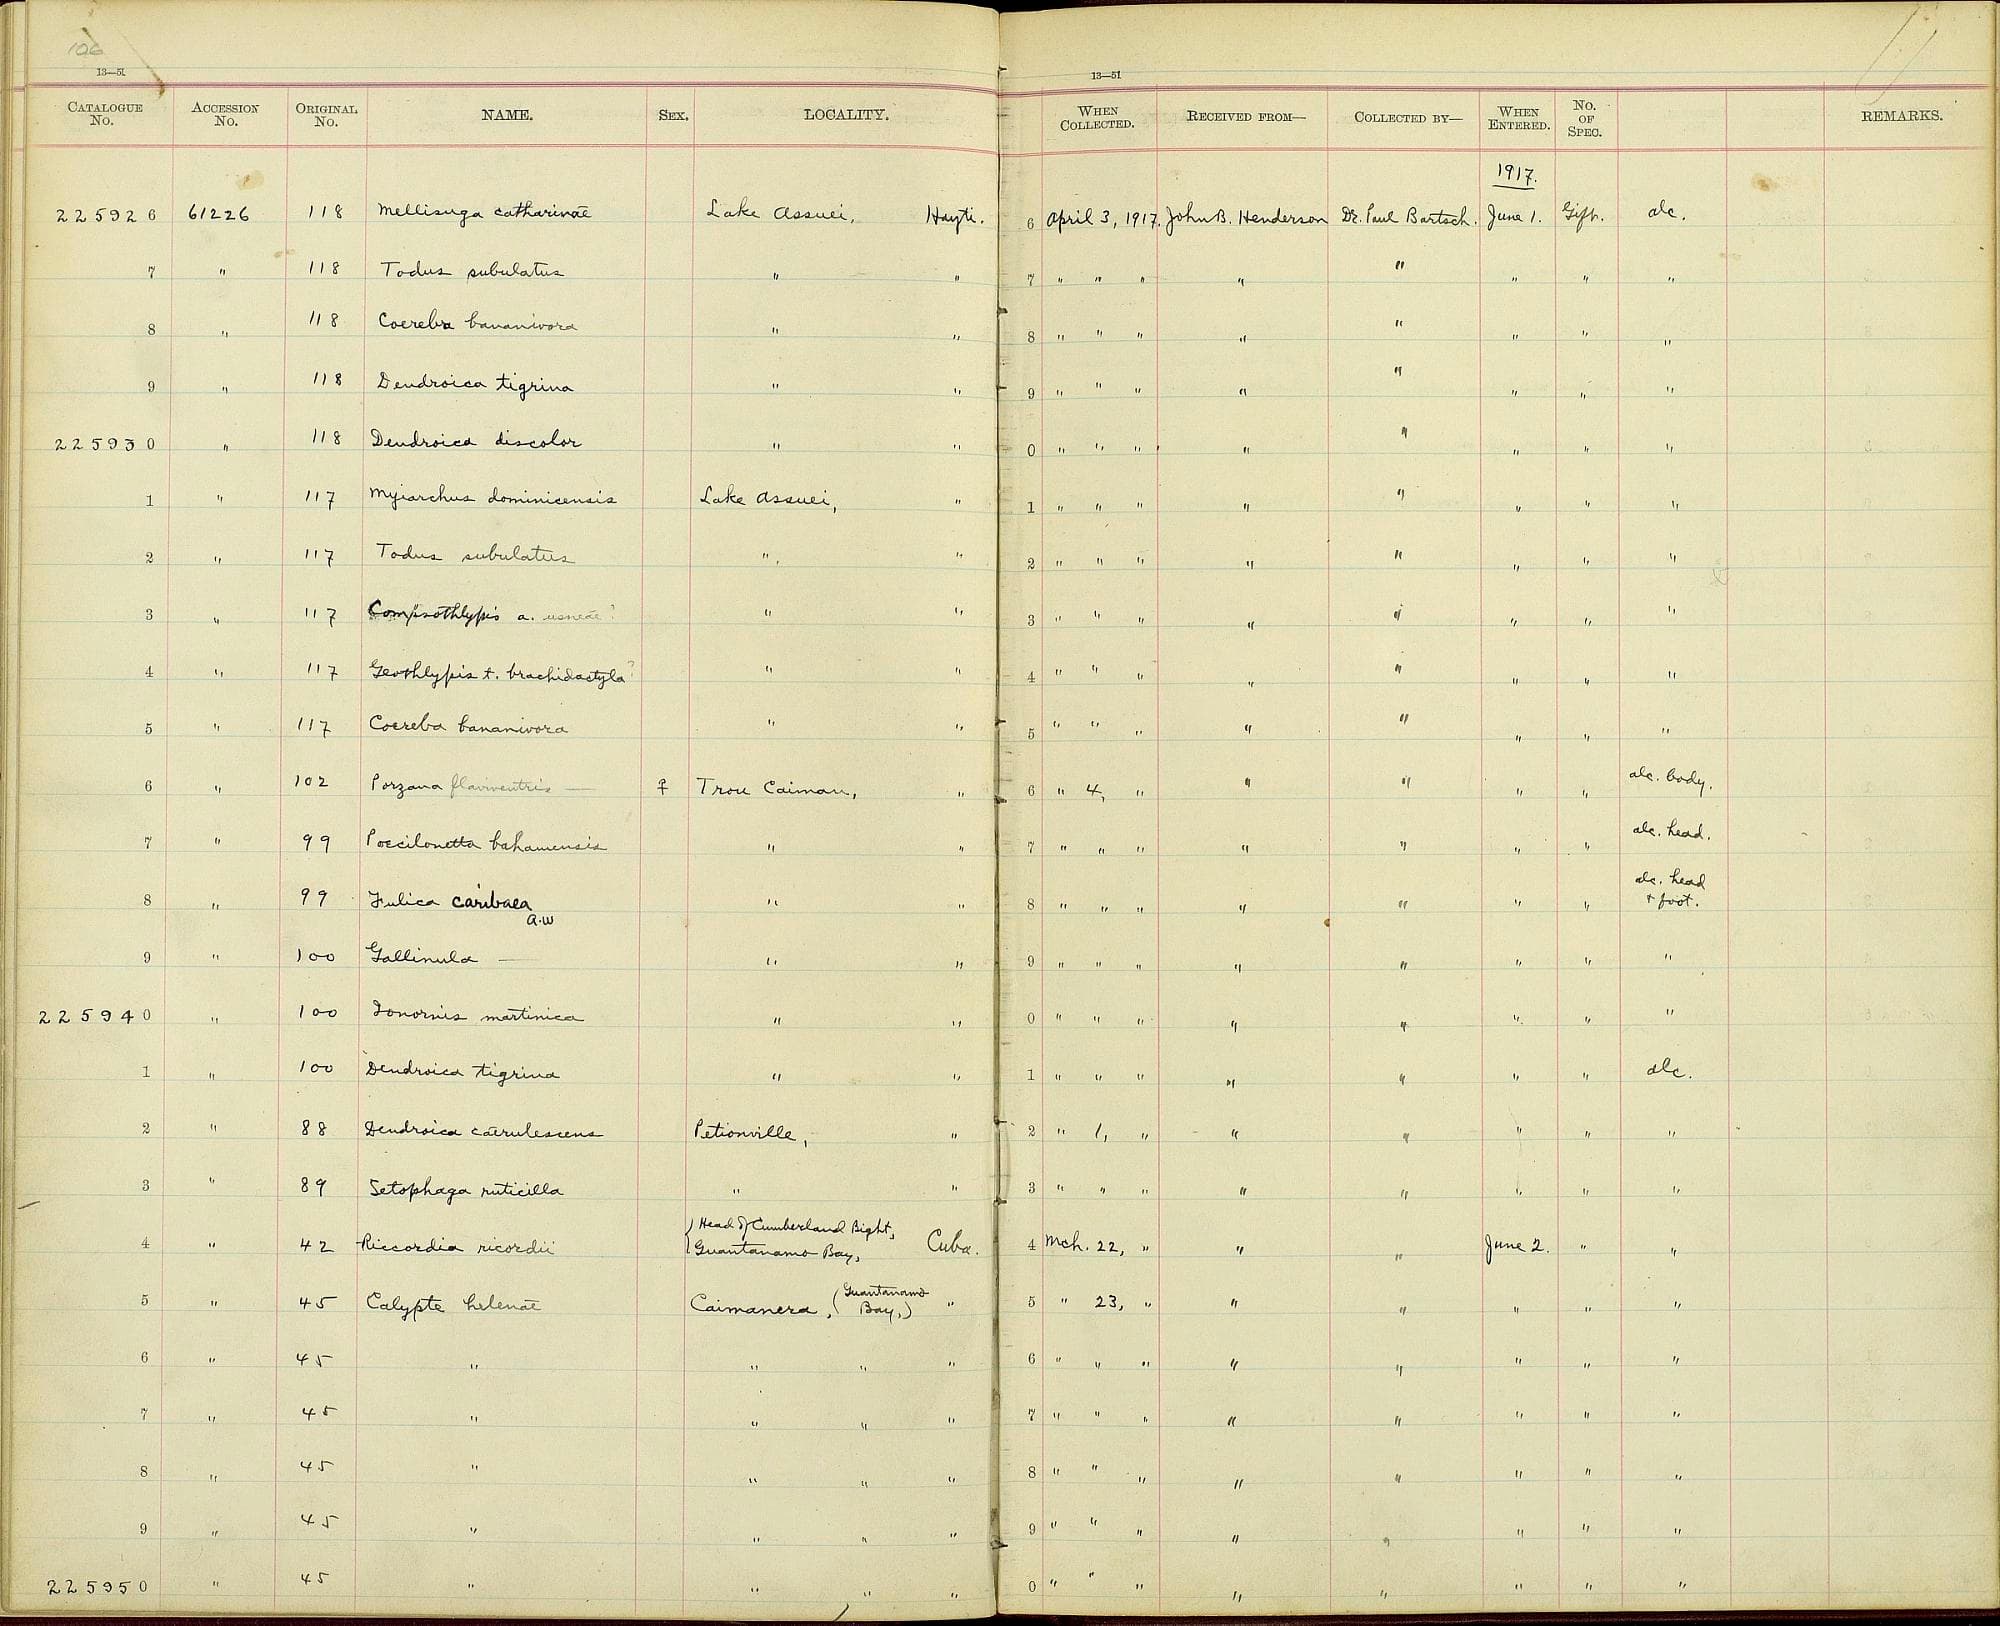 106
13—51
CATALOGUE No. ACCESSION No. ORIGINAL No. NAME. SEX. LOCALITY.
225926 61226 118 Mellisuga catharinae Lake Assuei, Hayti.
7 " 118 Todus subulatus " "
8 " 118 Coereba bananivora " "
9 " 118 Dendroica tigrina " "
225930 " 118 Dendroica discolor " "
1 " 117 Myiarchus dominicensis Lake Assuei, "
2 " 117 Todus subulatus " "
3 " 117 Compsothlypis a. usneae? " "
4 " 117 Geothlypis t. brachidactyla? " "
5 " 117 Coereba bananivora " "
6 " 102 Porzana flaviventris — ♀ Trou Caiman, "
7 " 99 Poecilonetta bahamensis " "
8 " 99 Fulica caribaea " "
A.W
9 " 100 Gallinula — " "
225940 " 100 Ionornis martinica " "
1 " 100 Dendroica tigrina " "
2 " 88 Dendroica caerulescens Petionville, "
3 " 89 Setophaga ruticilla " "
4 " 42 Riccordia ricordii Head of Cumberland Bight, Guantanamo Bay, Cuba.
5 " 45 Calypte helenae Caimanera, (Guantanamo Bay,) "
6 " 45 " " " "
7 " 45 " " " "
8 " 45 " " " "
9 " 45 " " " "
225950 " 45 " " " "
13—51
WHEN COLLECTED. RECEIVED FROM— COLLECTED BY— WHEN ENTERED. No. OF SPEC. REMARKS.
1917.
6 April 3, 1917. John B. Henderson Dr. Paul Bartsch. June 1. Gift. alc.
7 " " " " " " " "
8 " " " " " " " "
9 " " " " " " " "
0 " " " " " " " "
1 " " " " " " " "
2 " " " " " " " "
3 " " " " " " " "
4 " " " " " " " "
5 " " " " " " " "
6 " 4, " " " " " alc. body.
7 " " " " " " " alc. head.
8 " " " " " " " alc. head + foot.
9 " " " " " " " "
0 " " " " " " " "
1 " " " " " " " alc.
2 " 1, " " " " " "
3 " " " " " " " "
4 Mch. 22, " " " June 2. " "
5 " 23, " " " " " "
6 " " " " " " " "
7 " " " " " " " "
8 " " " " " " " "
9 " " " " " " " "
0 " " " " " " " "